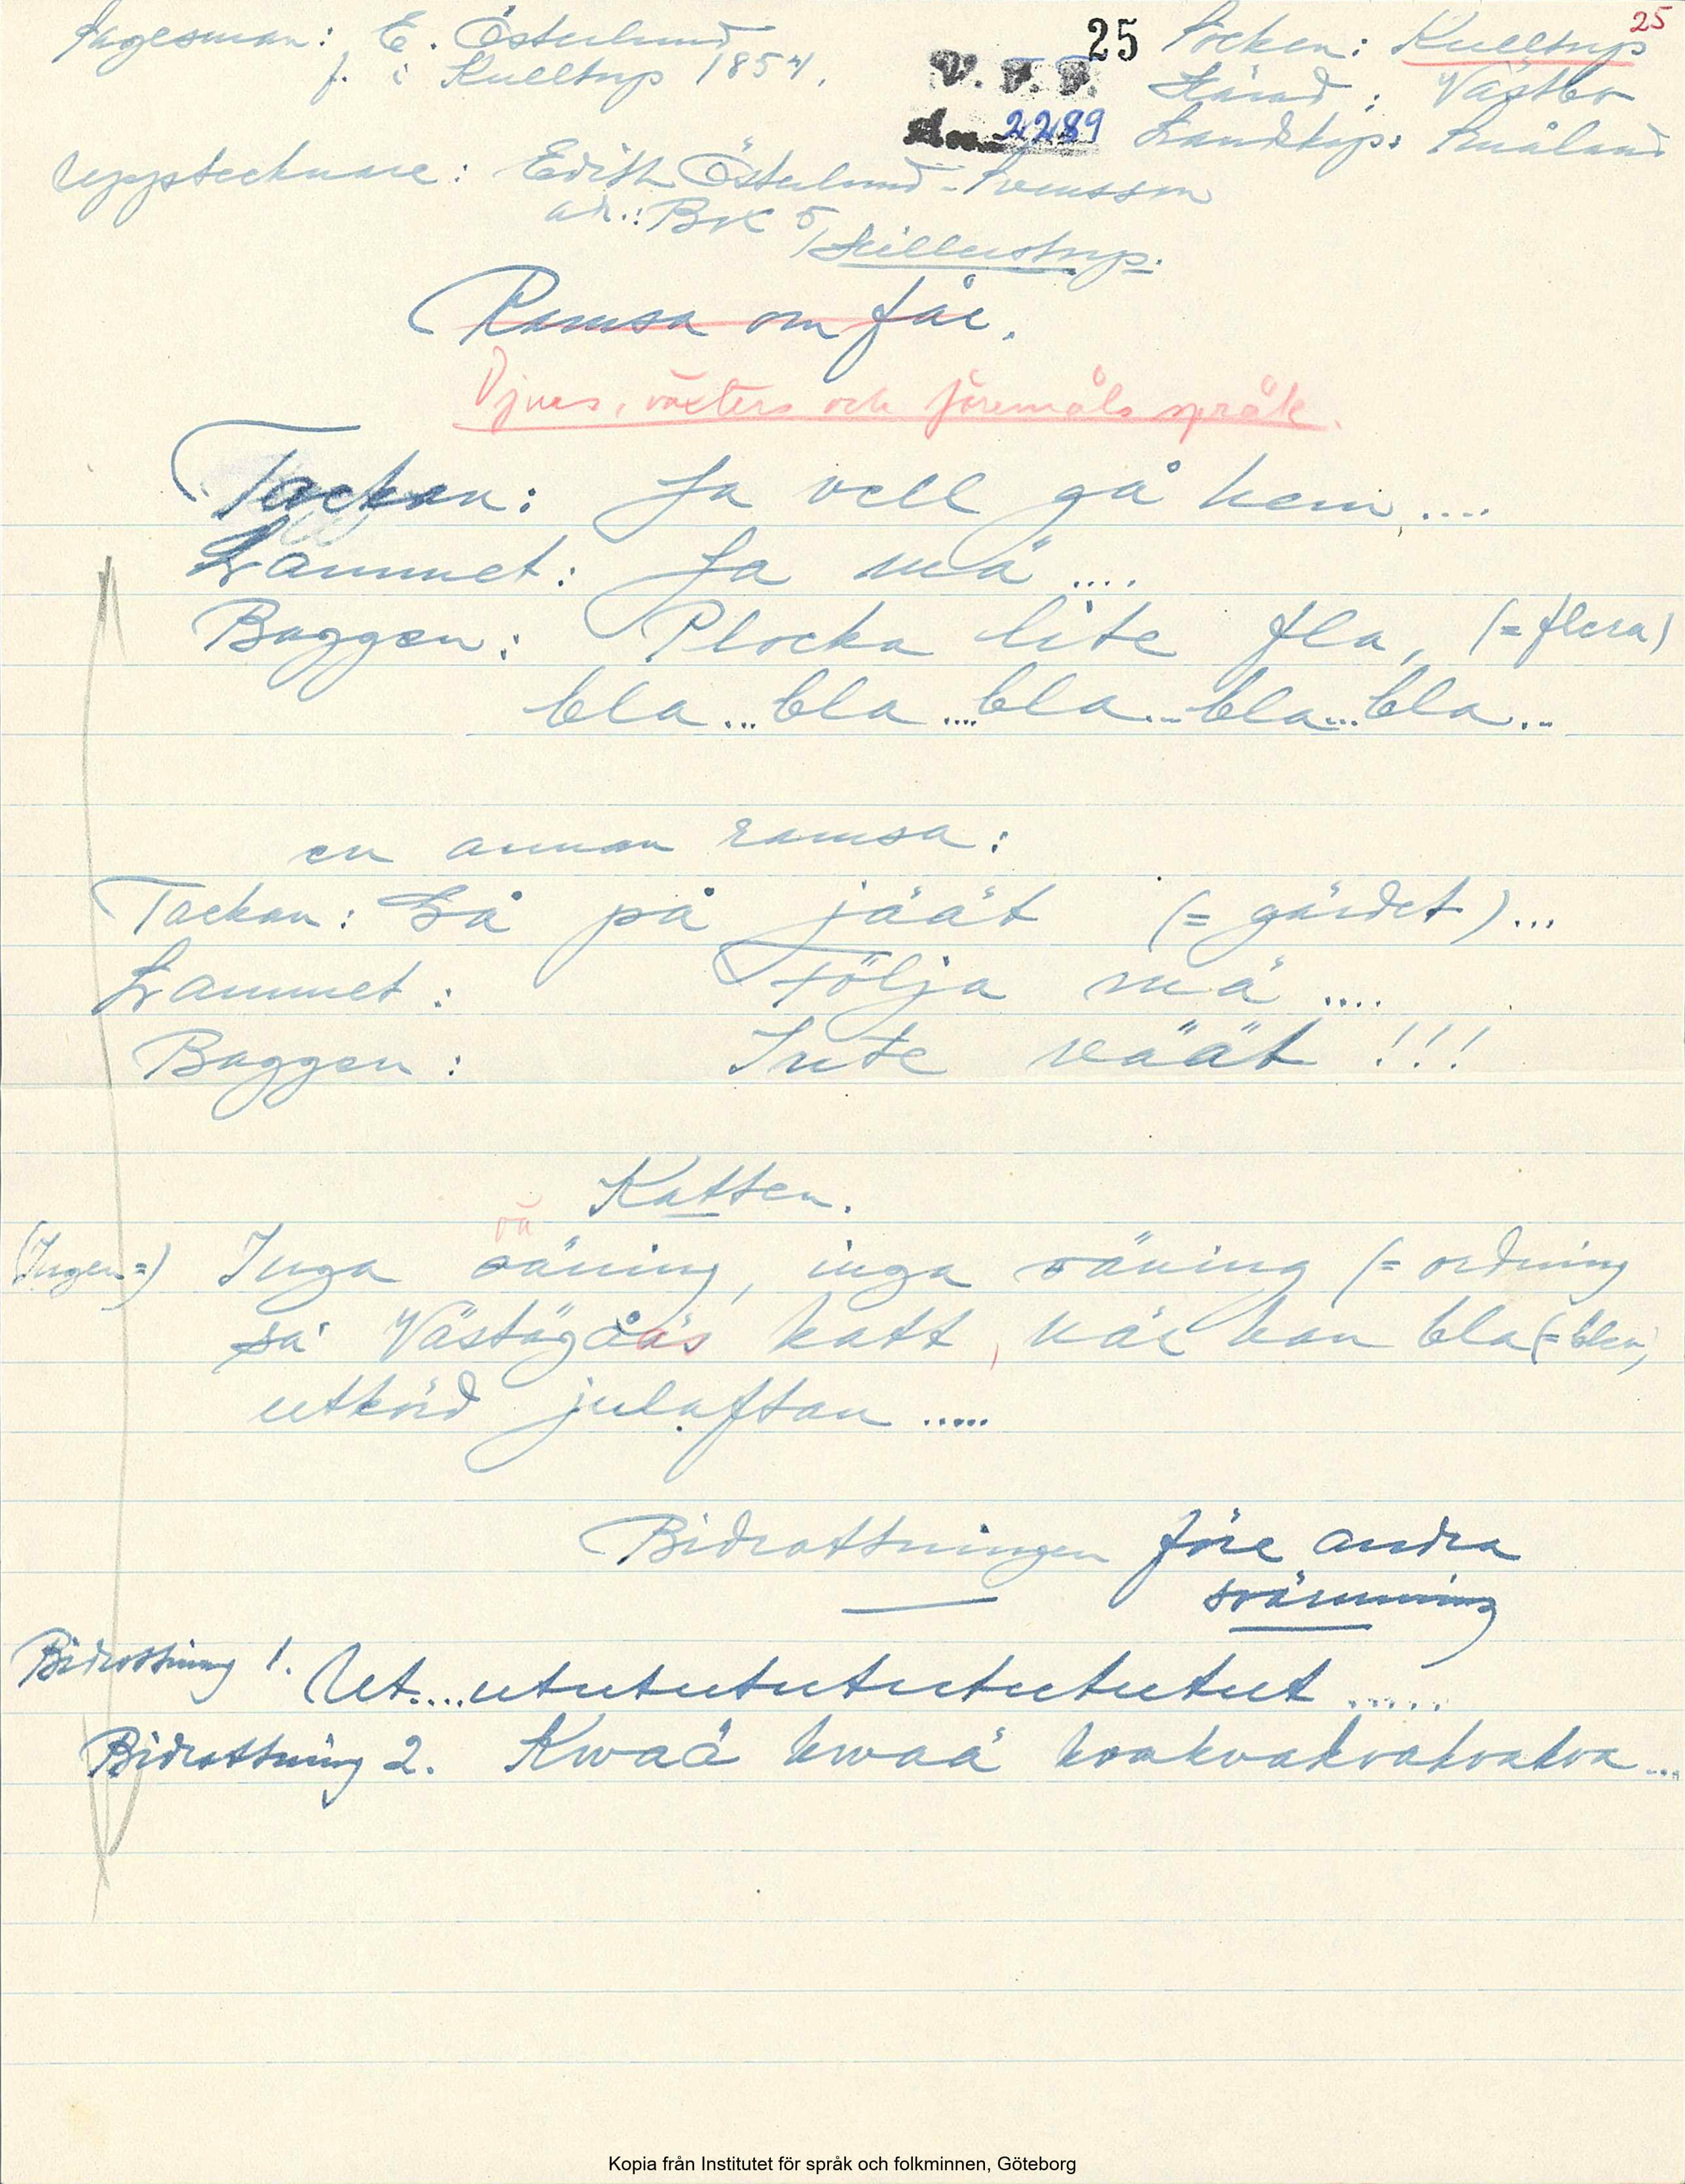 Sagesman: E. Österlund
f. i Kulltorp 1854.
25
25
Socken: Kulltorp
V. F. F.
Härad: Västbo
2289
Landskap: Småland
Upptecknare: Edith Österlund-Svensson
adr.: Box 5
Hillerstorp.
Ramsa om får.
Djurs, växters och föremåls språk.
Tackan: Ja vell gå hem ....
Lammet: Ja mä ....
Baggen: Plocka lite fla, (= flera)
bla... bla .... bla... bla... bla...
en annan ramsa:
Tackan: Gå på jäät (= gärdet)...
Lammet: Följa mä ....
Baggen: Inte väät !!!
Katten.
vä
(Ingen =) Inga väning, inga väning (= ordning
sa Västägååås katt, när han bla (= blev)
utkörd julaftan .....
Bidrottningen före andra
svärmning
Bidrottning 1. Ut....utututututututututut .....
Bidrottning 2. Kwaä kwaä kvakvakvakvakva...
Kopia från Institutet för språk och folkminnen, Göteborg